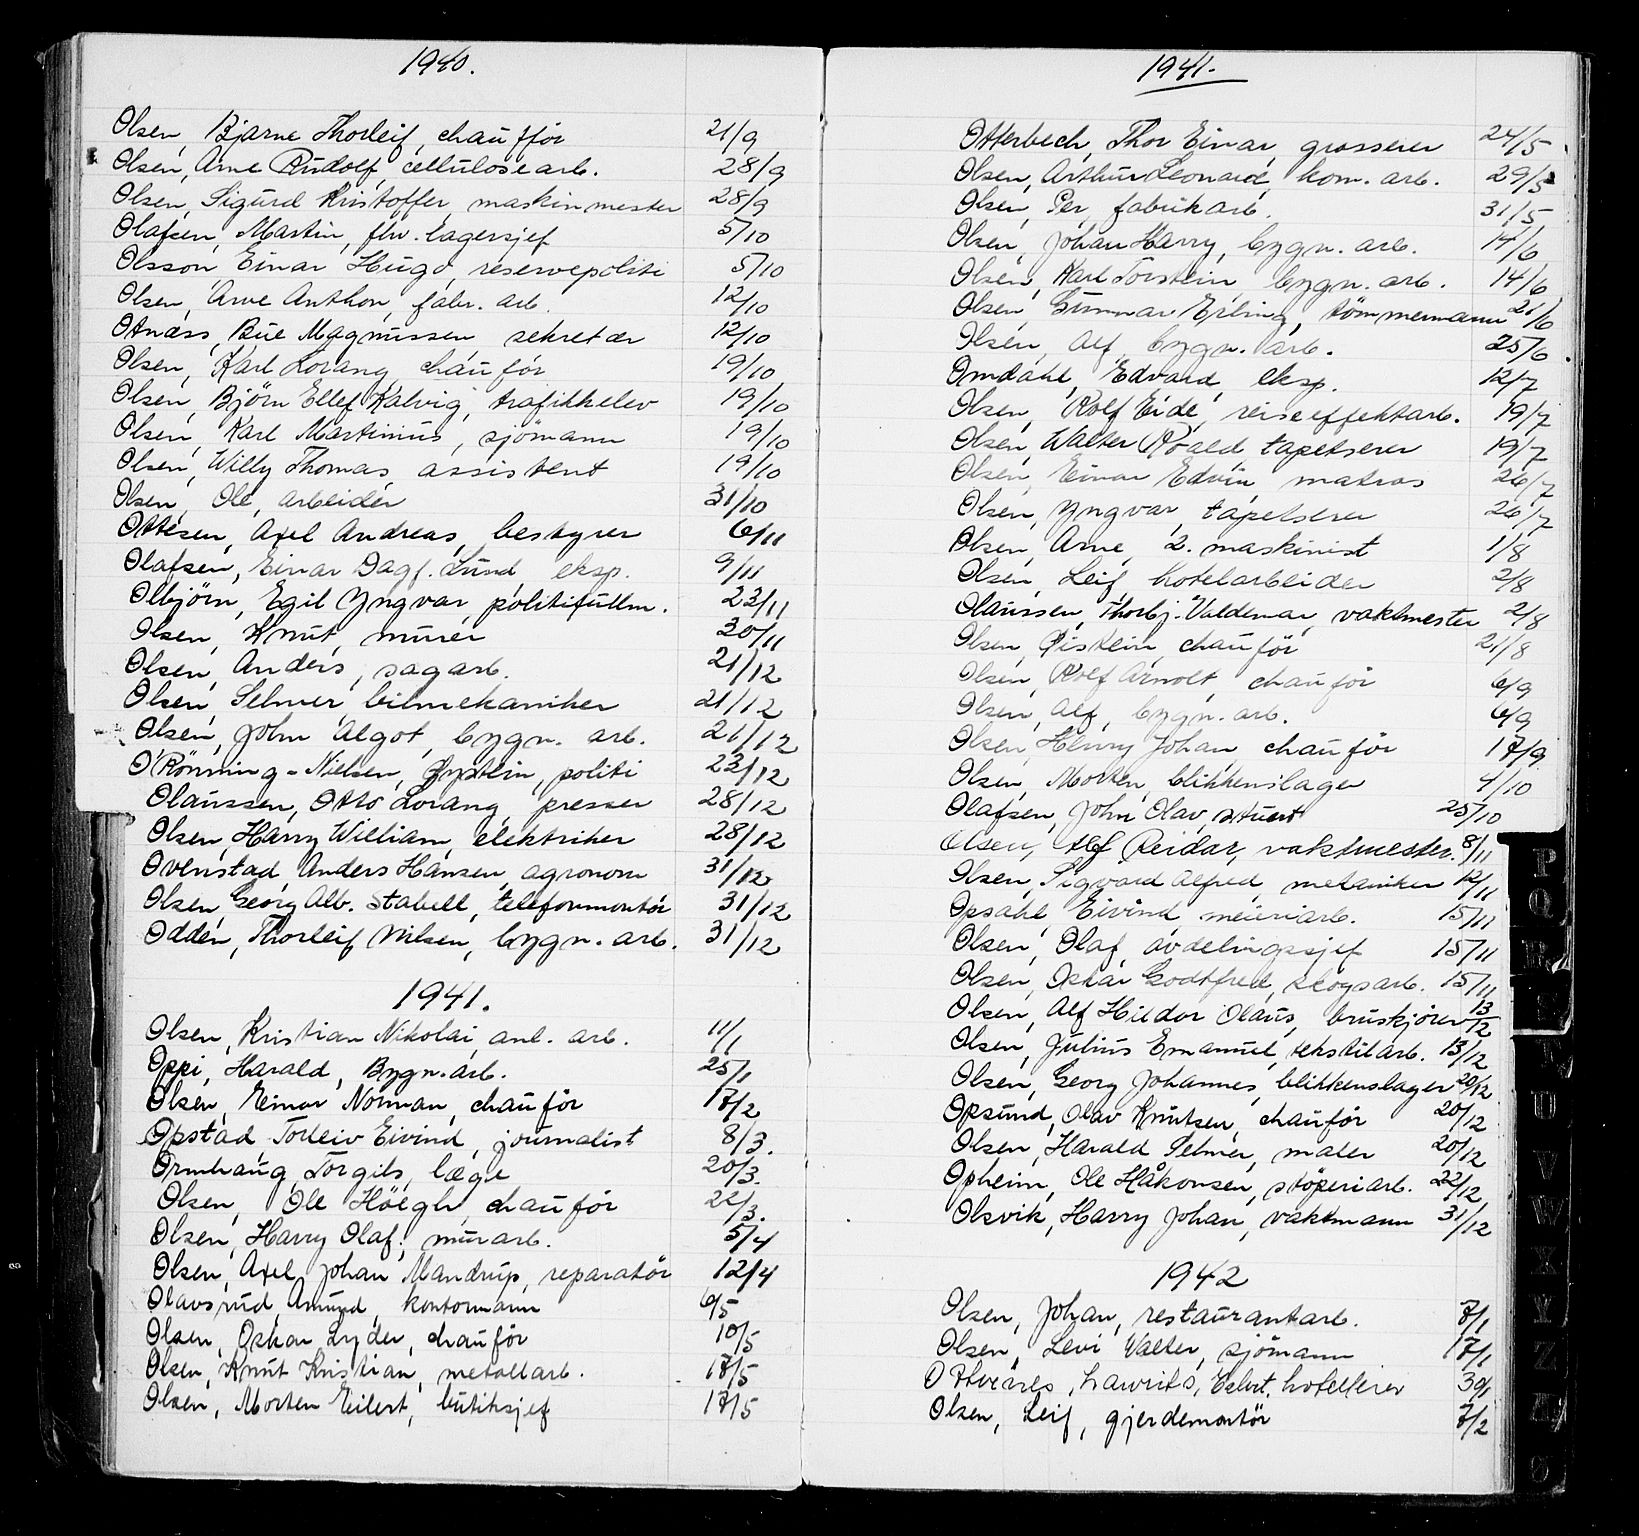 1940.
Olsen, Bjarne Thorleif, chaufför 21/9
Olsen, Arne Rudolf, cellulosearb. 28/9
Olsen, Sigurd Kristoffer, maskinmester 28/9
Olafsen, Martin, fhv. lagersjef 5/10
Olsson, Einar Hugo, reservepoliti 5/10
Olsen, Arve Anthon, fabr. arb. 12/10
Otnæss, Bue Magnussen sekretær 12/10
Olsen, Karl Lorang, chauför 19/10
Olsen, Björn Ellef Kalvig, trafikkelev 19/10
Olsen, Karl Martinius, sjömann 19/10
Olsen, Willy Thomas, assistent 19/10
Olsen, Ole, arbeider 31/10
Ottesen, Axel Andreas, bestyrer 6/11
Olafsen, Einar Dagf. Lund, eksp. 9/11
Olbjörn, Egil Yngvar, politifullm. 23/11
Olsen, Knut, murer 30/11
Olsen, Anders, sagarb. 21/12
Olsen, Selmer, bilmekaniker 21/12
Olsen, John Algot, bygn. arb. 21/12
O'Rönning-Nielsen, Öystein, politi 23/12
Olaussen, Otto Lorang, presser 28/12
Olsen, Harry William, elektriker 28/12
Ovenstad, Anders Hansen, agronom 31/12
Olsen, Georg Alb. Stabell, telefonmontör 31/12
Odden, Thorleif Nilsen, bygn. arb. 31/12
1941.
Olsen, Kristian Nikolai, anl. arb. 11/1
Oppi, Harald, Bygn. arb. 25/1
Olsen, Einar Norman, chauför 17/2
Opstad Torleiv Eivind, journalist 8/3.
Ormhaug, Torgils, læge 20/3.
Olsen, Ole Höegh, chauför 22/3.
Olsen, Harry Olaf, murarb. 5/4
Olsen, Axel Johan Mandrup, reparatör 12/4
Olavsrud, Amund, kontormann 6/5
Olsen, Oskar Lyder, chauför 10/5
Olsen, Knut Kristian, metallarb. 17/5
Olsen, Morten Eilert, butiksjef 17/5
1941.
Otterbech, Thor Einar, grosserer 24/5
Olsen, Arthur Leonard, kom. arb. 29/5
Olsen, Per, fabrikarb. 31/5
Olsen, Johan Harry, bygn. arb. 14/6
Olsen, Karl Torstein bygn. arb. 14/6
Olsen, Gunnar Erling, tömmermann 21/6
Olsen, Alf, bygn. arb. 25/6
Omdahl, Edvard, eksp. 12/7
Olsen, Rolf Eide, reiseeffektarb. 19/7
Olsen, Walter Roald tapetserer 19/7
Olsen, Einar Edvin matros 26/7
Olsen, Yngvar, tapetserer 26/7
Olsen, Arne, 2. maskinist 1/8
Olsen, Leif, hotelarbeider 2/8
Olaussen, Thorbj. Valdemar, vaktmester 2/8
Olsen, Øistein, chauför 21/8
Olsen, Rolf Arnolt, chauför 6/9
Olsen, Alf, bygn. arb. 6/9
Olsen, Henry Johan, chauför 17/9
Olsen, Morten, blikkenslager 4/10
Olafsen, John Olav, stuert 25/10
Olsen, Alf Reidar, vaktmester. 8/11
Olsen, Sigvard Alfred, mekaniker 12/11
Opsahl, Eivind, meieriarb. 15/11
Olsen, Olaf, avdelingssjef 15/11
Olsen, Oskar Godtfred, skogsarb. 15/11
Olsen, Alf Hildor Olaus, bruskjörer 13/12
Olsen, Julius Emanuel, tekstilarb. 13/12
Olsen, Georg Johannes, blikkenslager 20/12
Opsund, Olav Knutsen, chauför 20/12
Olsen, Harald Selmer, maler 20/12
Opheim, Ole Håkonsen, stöperiarb. 22/12
Olsvik, Harry Johan, vaktmann 31/12
1942
Olsen, Johan, restaurantarb. 7/1
Olsen, Levi Walter, sjömann 17/1
Lawrits, hotellerer 30/1
Olsen, Leif, gjerdemontör 7/2
P
Q
R
S
T
U
V
W
X
Y
Z
Æ
Ø